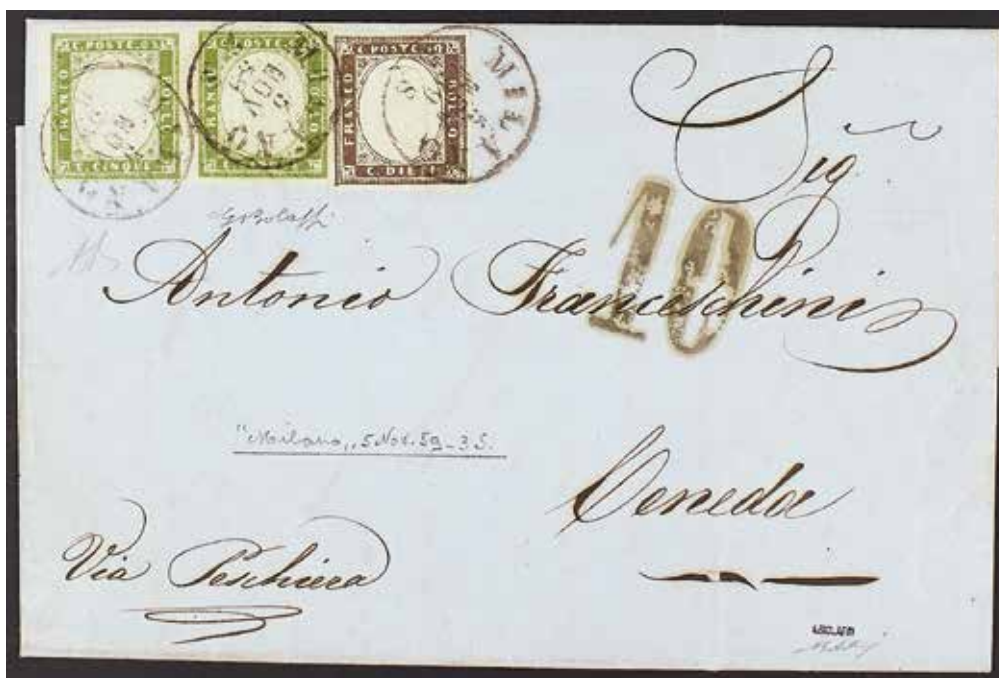 C. POSTE. 05
FRANCO
BOLLO
C. CINQUE
C. POSTE. 05
FRANCO
BOLLO
C. CINQUE
C. POSTE. 10
FRANCO
BOLLO
C. DIECI
MILANO
MILANO
MILANO
Sig
10
Antonio Franceschini
"Milano,, 5 Nov. 59 - 3 S.
Ceneda
Via Peschiera